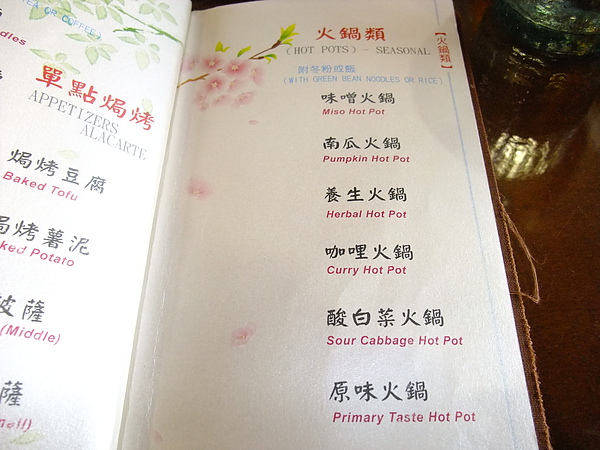 TEA OR COFFEE)
單點焗烤
APPETIZERS
ALACARTE
焗烤豆腐
Baked Tofu
焗烤薯泥
ked Potato
披薩
(Middle)
薩
火鍋類
(HOT POTS) - SEASONAL
【火鍋類】
附冬粉或飯
(WITH GREEN BEAN NOODLES OR RICE)
味噌火鍋
Miso Hot Pot
南瓜火鍋
Pumpkin Hot Pot
養生火鍋
Herbal Hot Pot
咖哩火鍋
Curry Hot Pot
酸白菜火鍋
Sour Cabbage Hot Pot
原味火鍋
Primary Taste Hot Pot